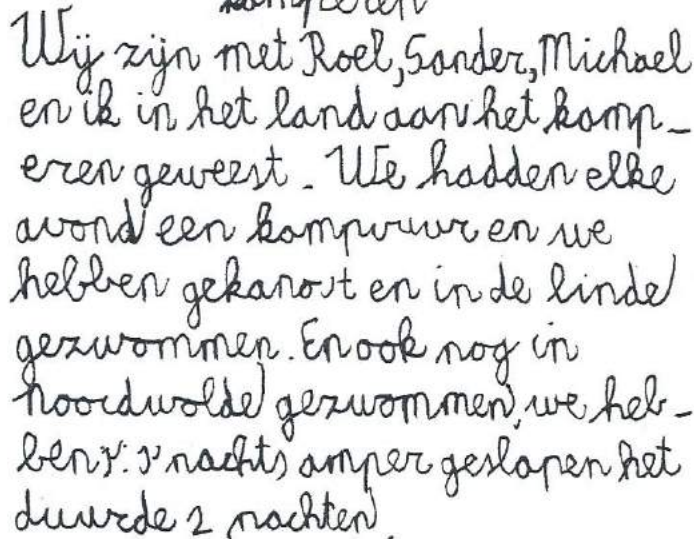 kamperen
Wij zijn met Roel, Sander, Michael
en ik in het land aan het kamp-
eren geweest. We hadden elke
avond een kampvuur en we
hebben gekanost en in de linde
gezwommen. En ook nog in
noordwolde gezwommen, we heb-
ben s'nachts amper geslapen het
duurde 2 nachten.